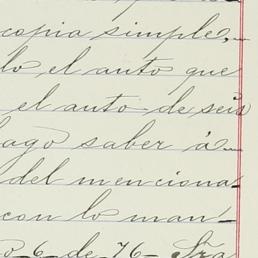 copia simple,
lo el auto que
el auto de seis
hago saber á
del menciona-
con lo man-
6 de 76